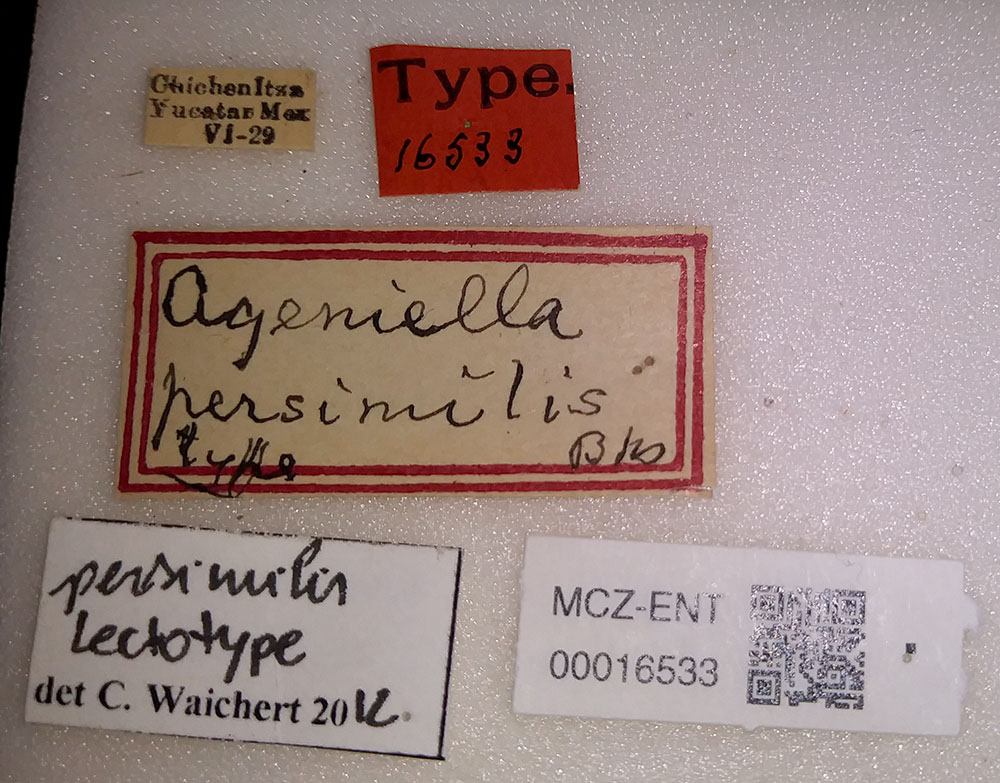 Chichen Itza
Yucatan Mex
VI-29
Type.
16533
Ageniella
persimilis
type Bks
persimilis
lectotype
det C. Waichert 2012.
MCZ-ENT
00016533